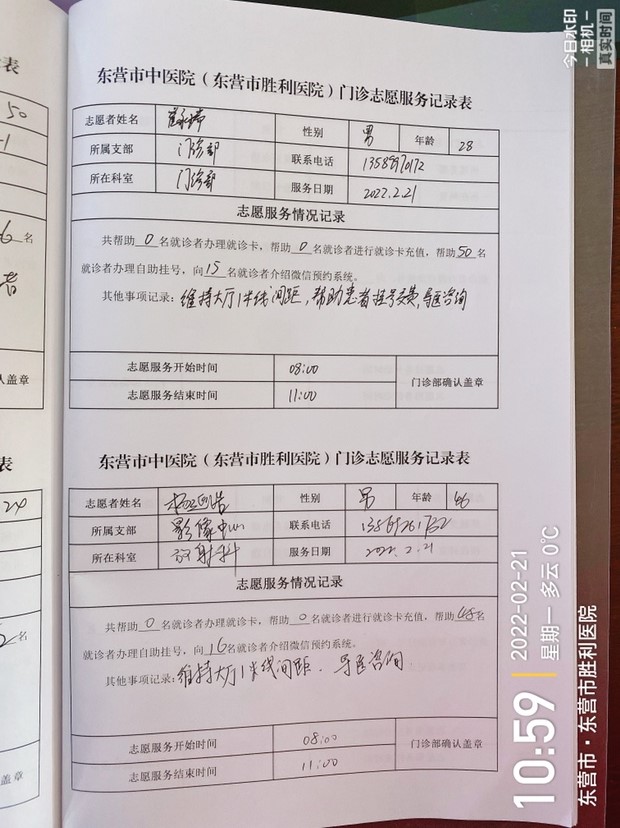 东营市中医院（东营市胜利医院）门诊志愿服务记录表
志愿者姓名 性别 男 年龄 28
所属支部 门诊部 联系电话
所在科室 门诊部 服务日期 2022.2.21
志愿服务情况记录
共帮助 0 名就诊者办理就诊卡，帮助 0 名就诊者进行就诊卡充值，帮助 50 名
就诊者办理自助挂号，向 15 名就诊者介绍微信预约系统。
其他事项记录：维持大厅1米线间距，帮助患者挂号交费，导医咨询
志愿服务开始时间 08:00
志愿服务结束时间 11:00
门诊部确认盖章
东营市中医院（东营市胜利医院）门诊志愿服务记录表
志愿者姓名 性别 男 年龄 46
所属支部 影像中心 联系电话
所在科室 放射科 服务日期 2022.2.21
志愿服务情况记录
共帮助 0 名就诊者办理就诊卡，帮助 0 名就诊者进行就诊卡充值，帮助 45 名
就诊者办理自助挂号，向 16 名就诊者介绍微信预约系统。
其他事项记录：维持大厅1米线间距．导医咨询
志愿服务开始时间 08:00
志愿服务结束时间 11:00
门诊部确认盖章
表
50
名
认盖章
表
24
名
盖章
今日水印
-相机-
真实时间
10:59
2022-02-21
星期一 多云 0℃
东营市·东营市胜利医院